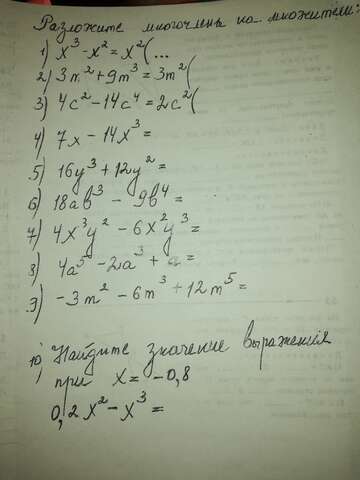 Разложите многочлены на множители:
1) x³ - x² = x²(...
2) 3m² + 9m³ = 3m²(
3) 4c² - 14c⁴ = 2c²(
4) 7x - 14x³ =
5) 16y³ + 12y² =
6) 18ab³ - 9b⁴ =
7) 4x³y² - 6x²y³ =
8) 4a⁵ - 2a³ + a =
9) -3m² - 6m³ + 12m⁵ =
10) Найдите значение выражения
при x = -0,8
0,2x² - x³ =